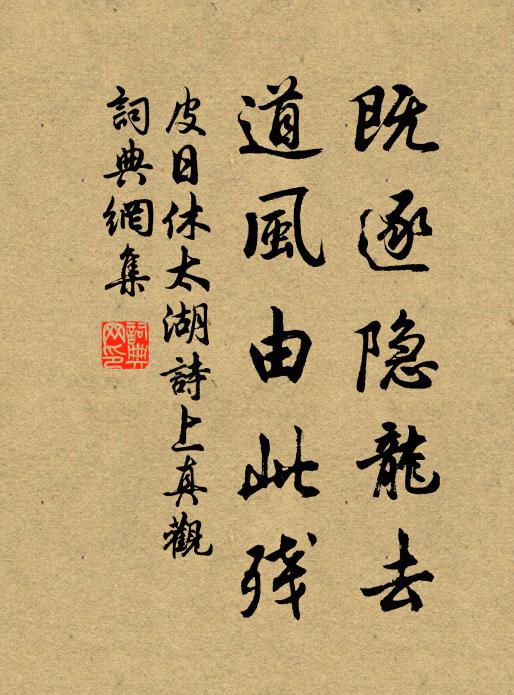 既逐隐龍去
道風由此残
皮日休太湖詩上真觀
詞典網集
詞典
网印